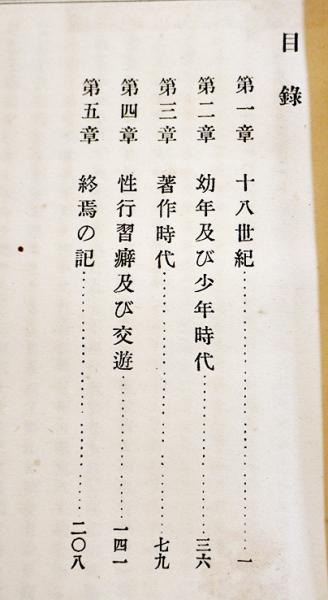 目錄
第一章 十八世紀……………………一
第二章 幼年及び少年時代……………………三六
第三章 著作時代……………………七九
第四章 性行習癖及び交遊……………………一四一
第五章 終焉の記……………………二〇八